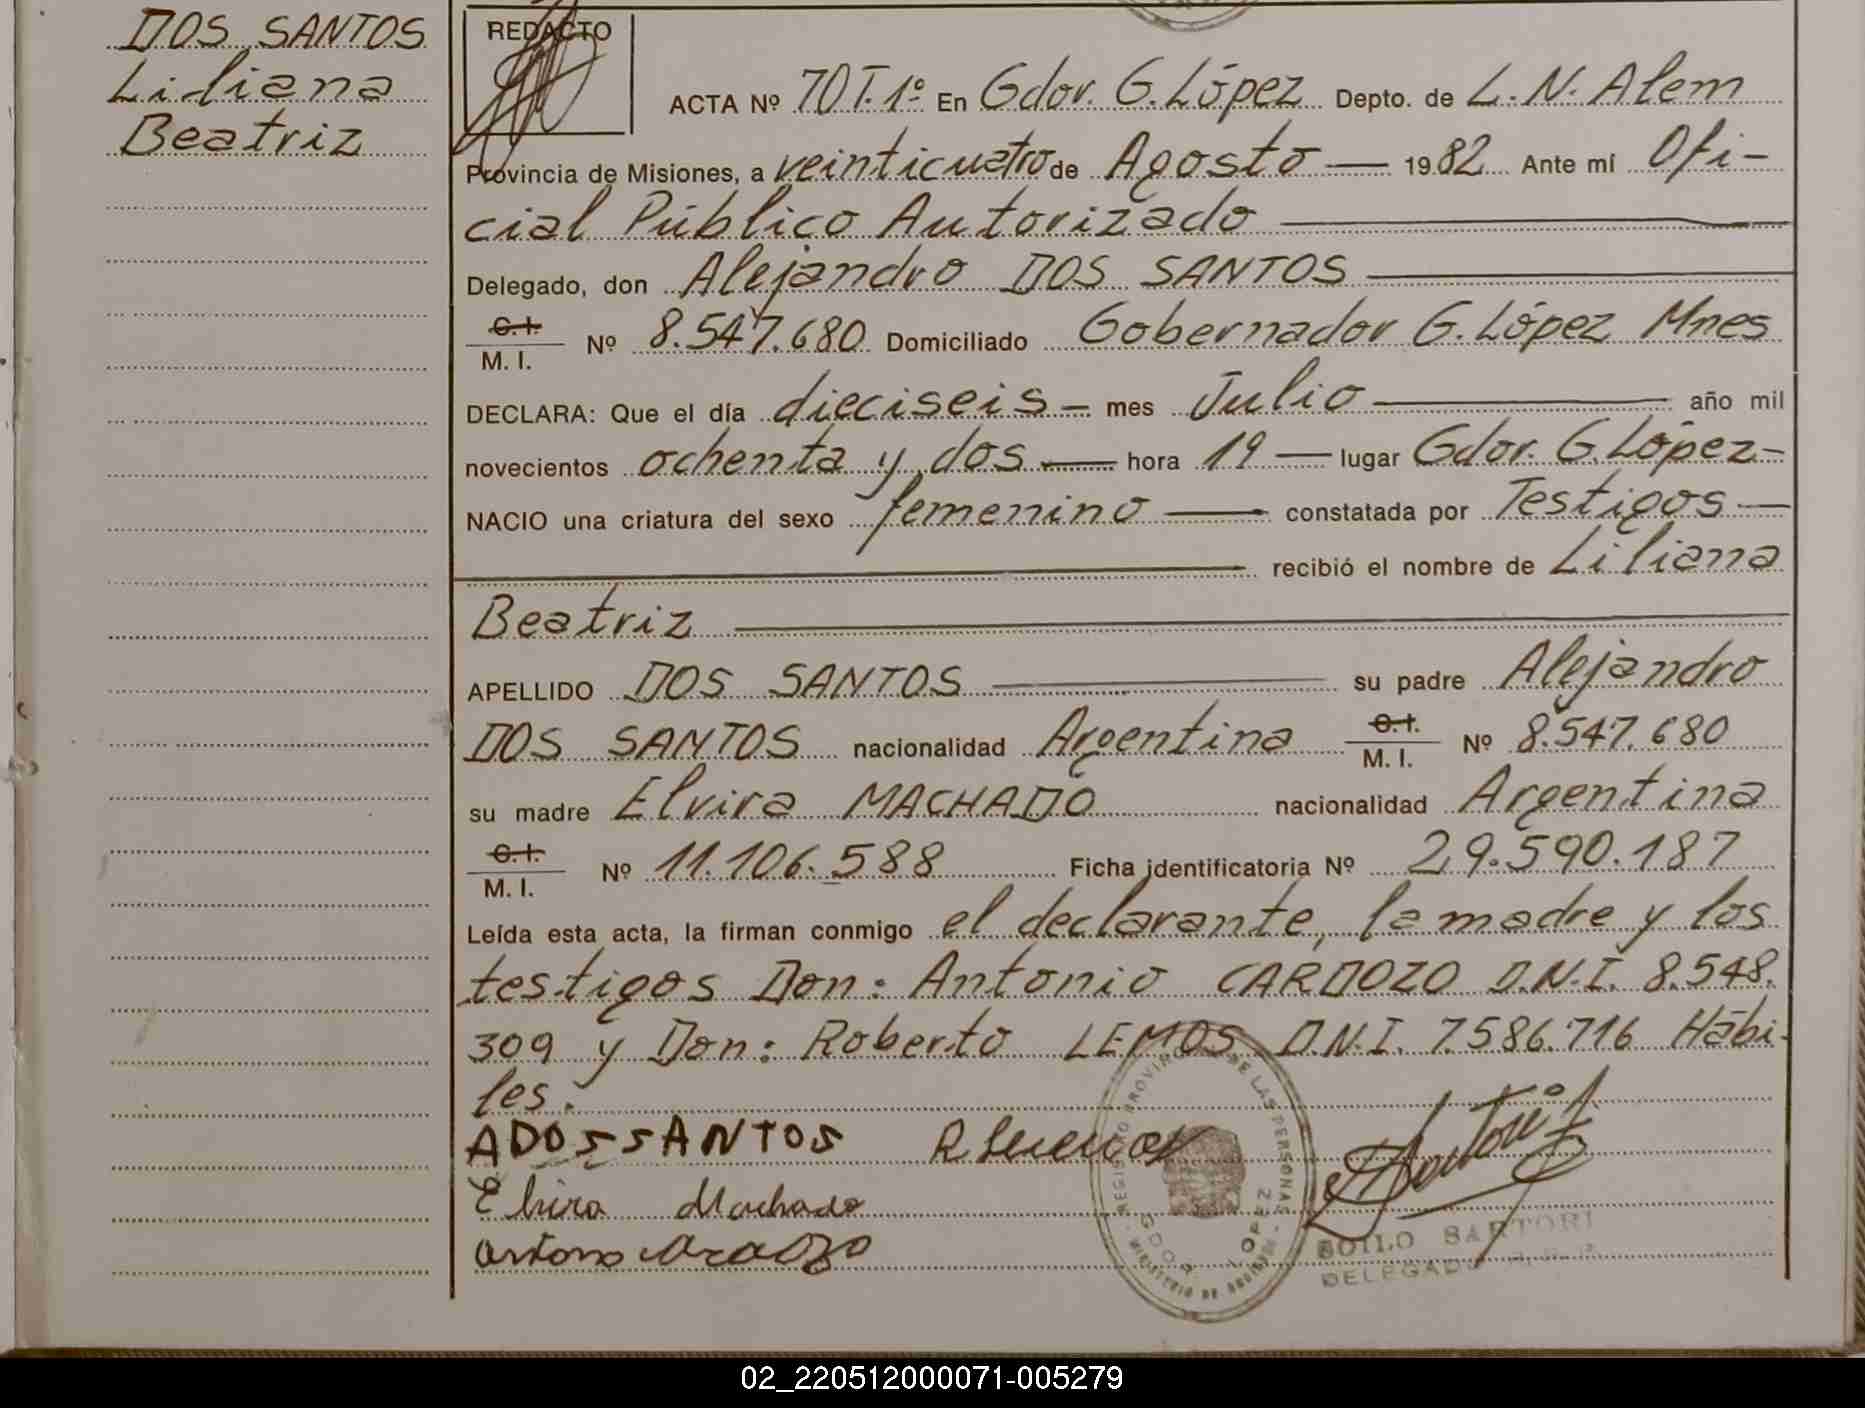 DOS SANTOS
Liliana
Beatriz
REDACTO
ACTA Nº 70 T. 1º En Gdor. G. López Depto. de L. N. Alem
Provincia de Misiones, a veinticuatro de Agosto — 1982 Ante mí Ofi-
cial Público Autorizado
Delegado, don Alejandro DOS SANTOS
C.I.
M. I. Nº 8.547.680 Domiciliado Gobernador G. López Mnes
DECLARA: Que el día dieciseis — mes Julio — año mil
novecientos ochenta y dos — hora 19 — lugar Gdor. G. López-
NACIO una criatura del sexo femenino — constatada por Testigos —
recibió el nombre de Liliana
Beatriz
APELLIDO DOS SANTOS — su padre Alejandro
DOS SANTOS nacionalidad Argentina C.I. M. I. Nº 8.547.680
su madre Elvira MACHADO nacionalidad Argentina
C.I.
M. I. Nº 11.106.588 Ficha identificatoria Nº 29.590.187
Leída esta acta, la firman conmigo el declarante, la madre y los
testigos Don: Antonio CARDOZO D.N.I. 8.548.
309 y Don: Roberto LEMOS D.N.I. 7.586.716 Hábi-
les.
ADOSSANTOS
Elvira Machado
REGISTRO PROVINCIAL DE LAS PERSONAS
GDOR. LOPEZ
ZOILO SARTORI
DELEGADO
02_220512000071-005279